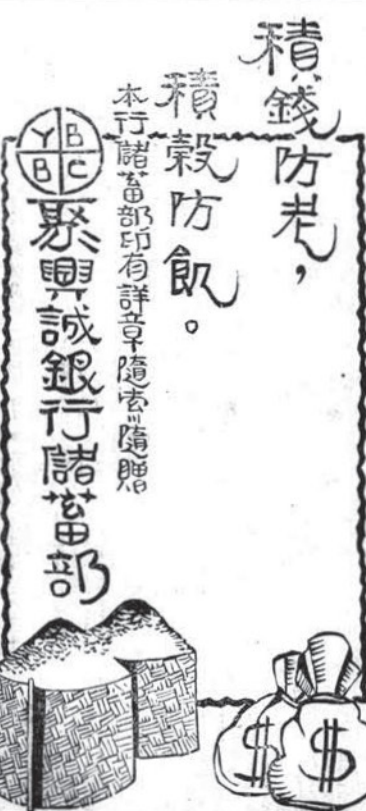 積錢防老，
積穀防飢。
本行儲蓄部印有詳章隨索隨贈
YB
BC
聚興誠銀行儲蓄部
$
$